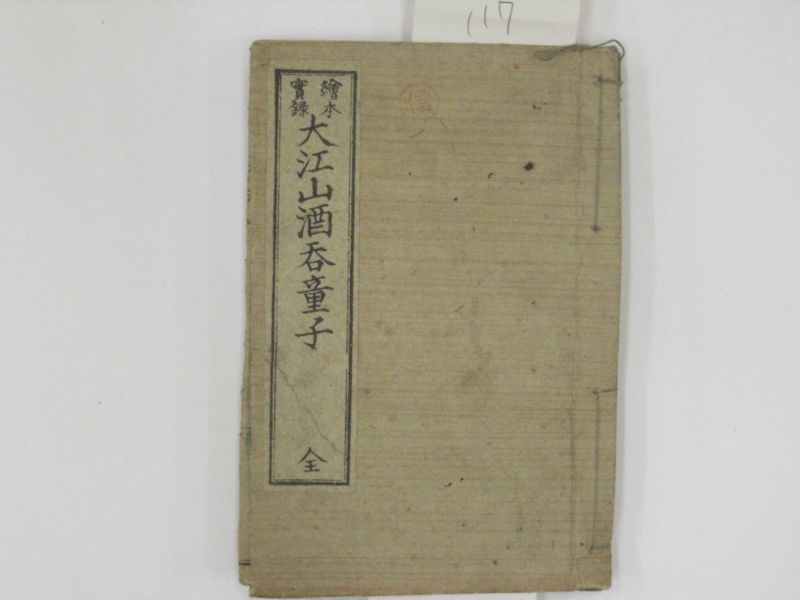 繪本
實錄
大江山酒呑童子
全
117